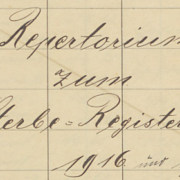 Repertorium
zum
Sterbe=Register
1916 und 1